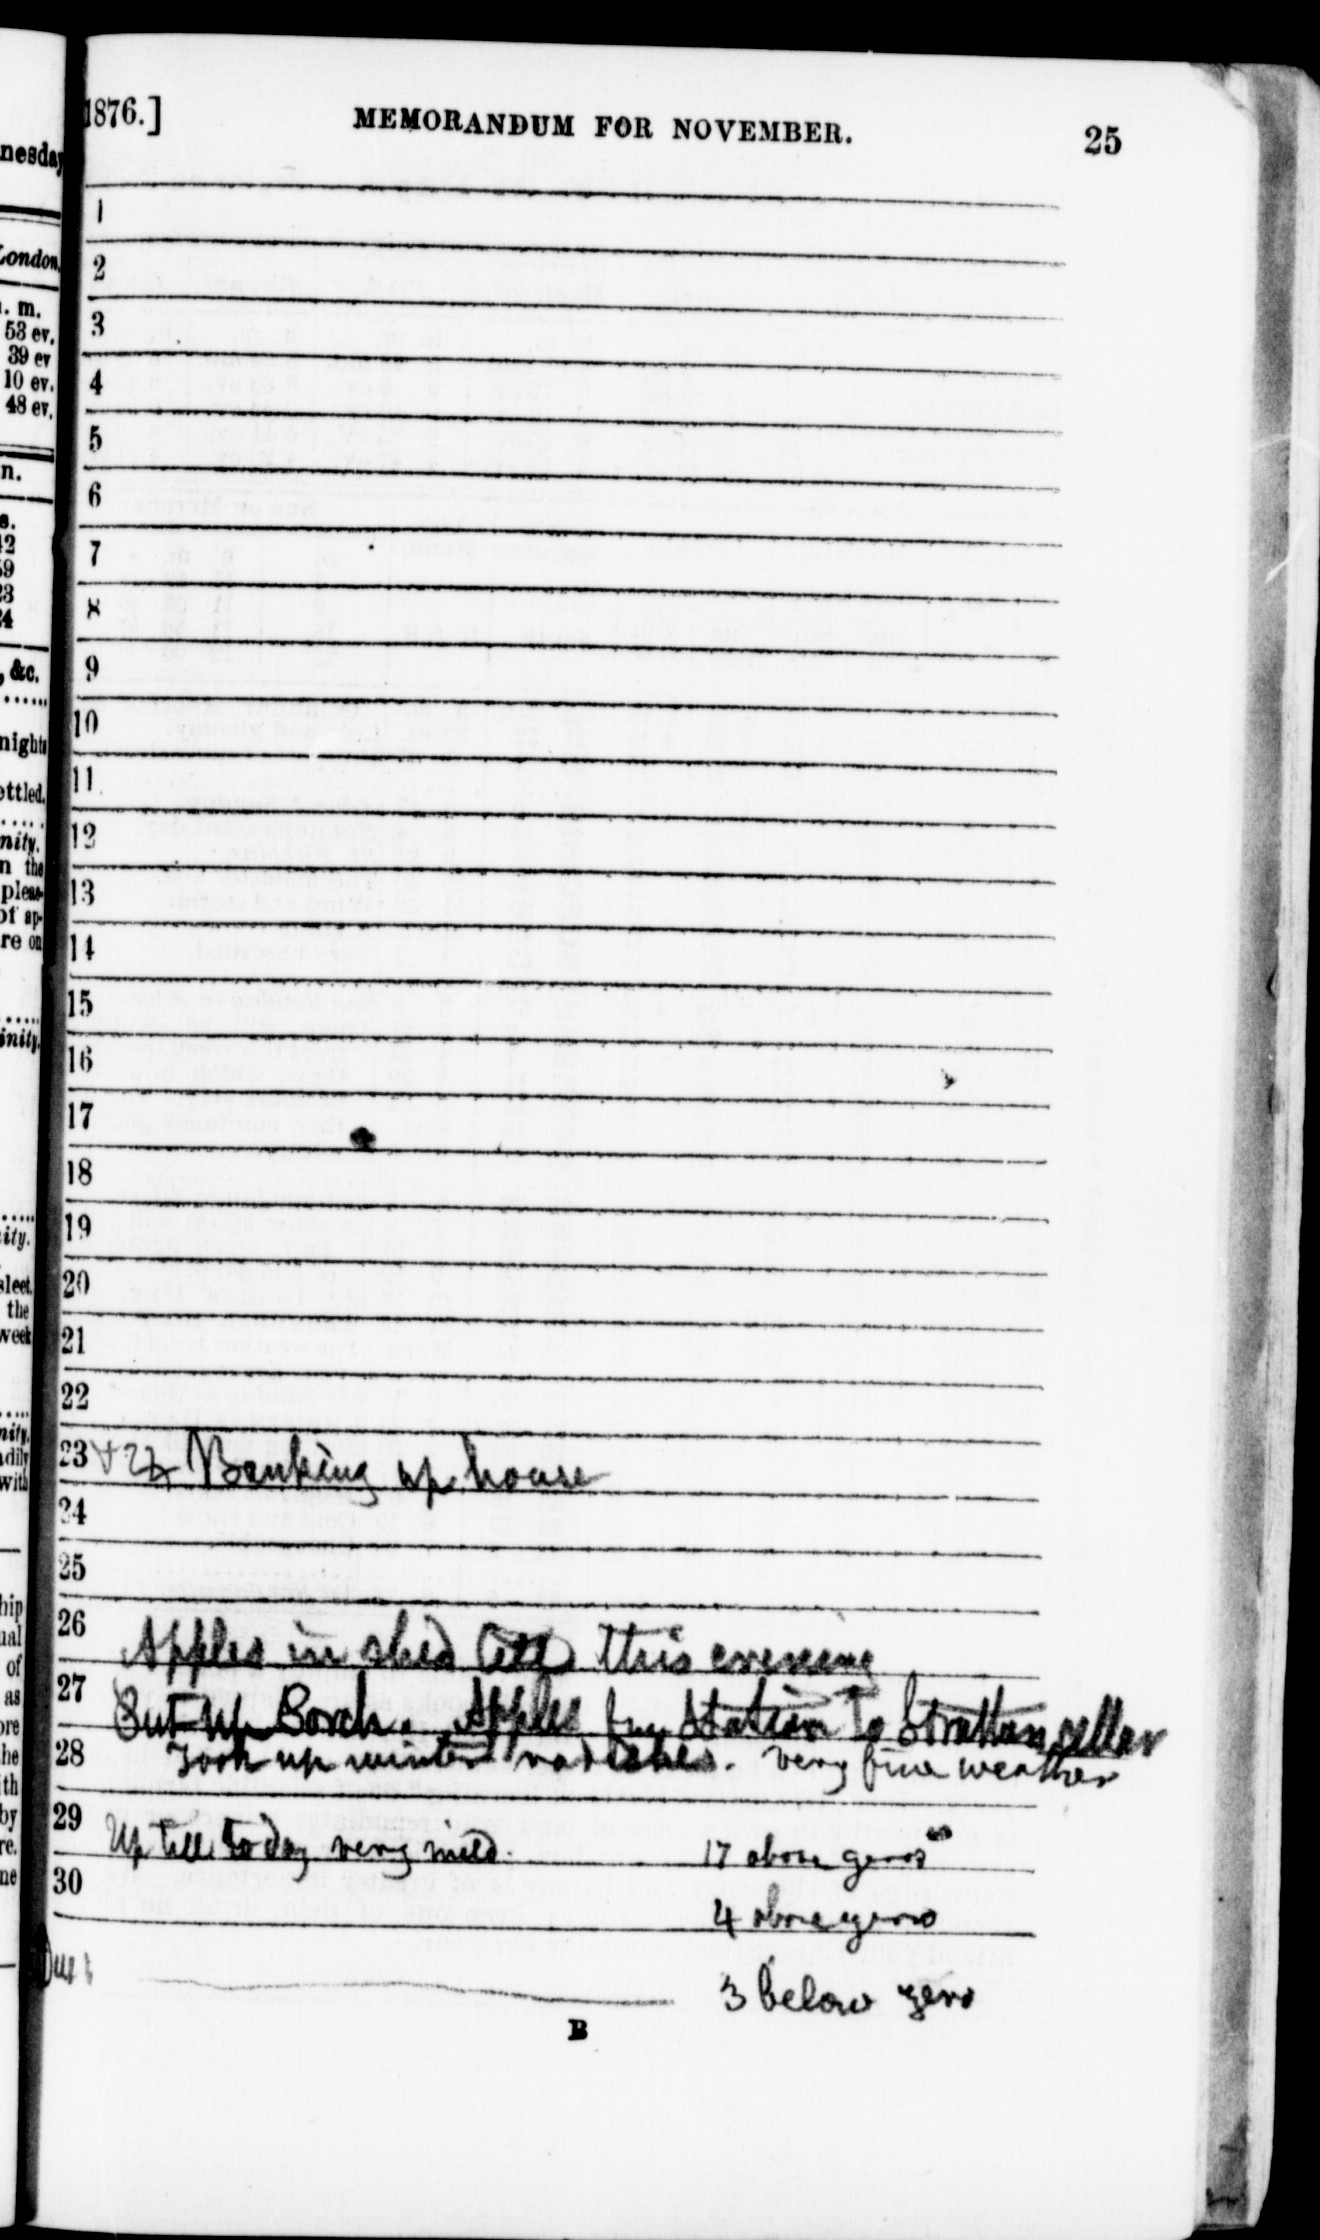 1876.] MEMORANDUM FOR NOVEMBER. 25
nesday
London,
. m.
53 ev.
39 ev
10 ev.
48 ev.
n.
s.
42
59
23
24
, &c.
......
nights
ettled.
.....
nity.
n the
pleas-
of ap-
re on
.....
inity.
.....
ity.
sleet.
the
week
....
nity.
adily
with
hip
ual
of
as
ore
he
ith
by
re.
ne
1
2
3
4
5
6
7
8
9
10
11
12
13
14
15
16
17
18
19
20
21
22
23 + 22 Banking up house
24
25
26 Apples in shed till this evening
27 Put up Porch. Apples from Station to Strattan cellar
28 Took up winter radishes. Very fine weather
29 Up till today very mild. 17 above zero
30 4 above zero
Dec 1 3 below zero
B